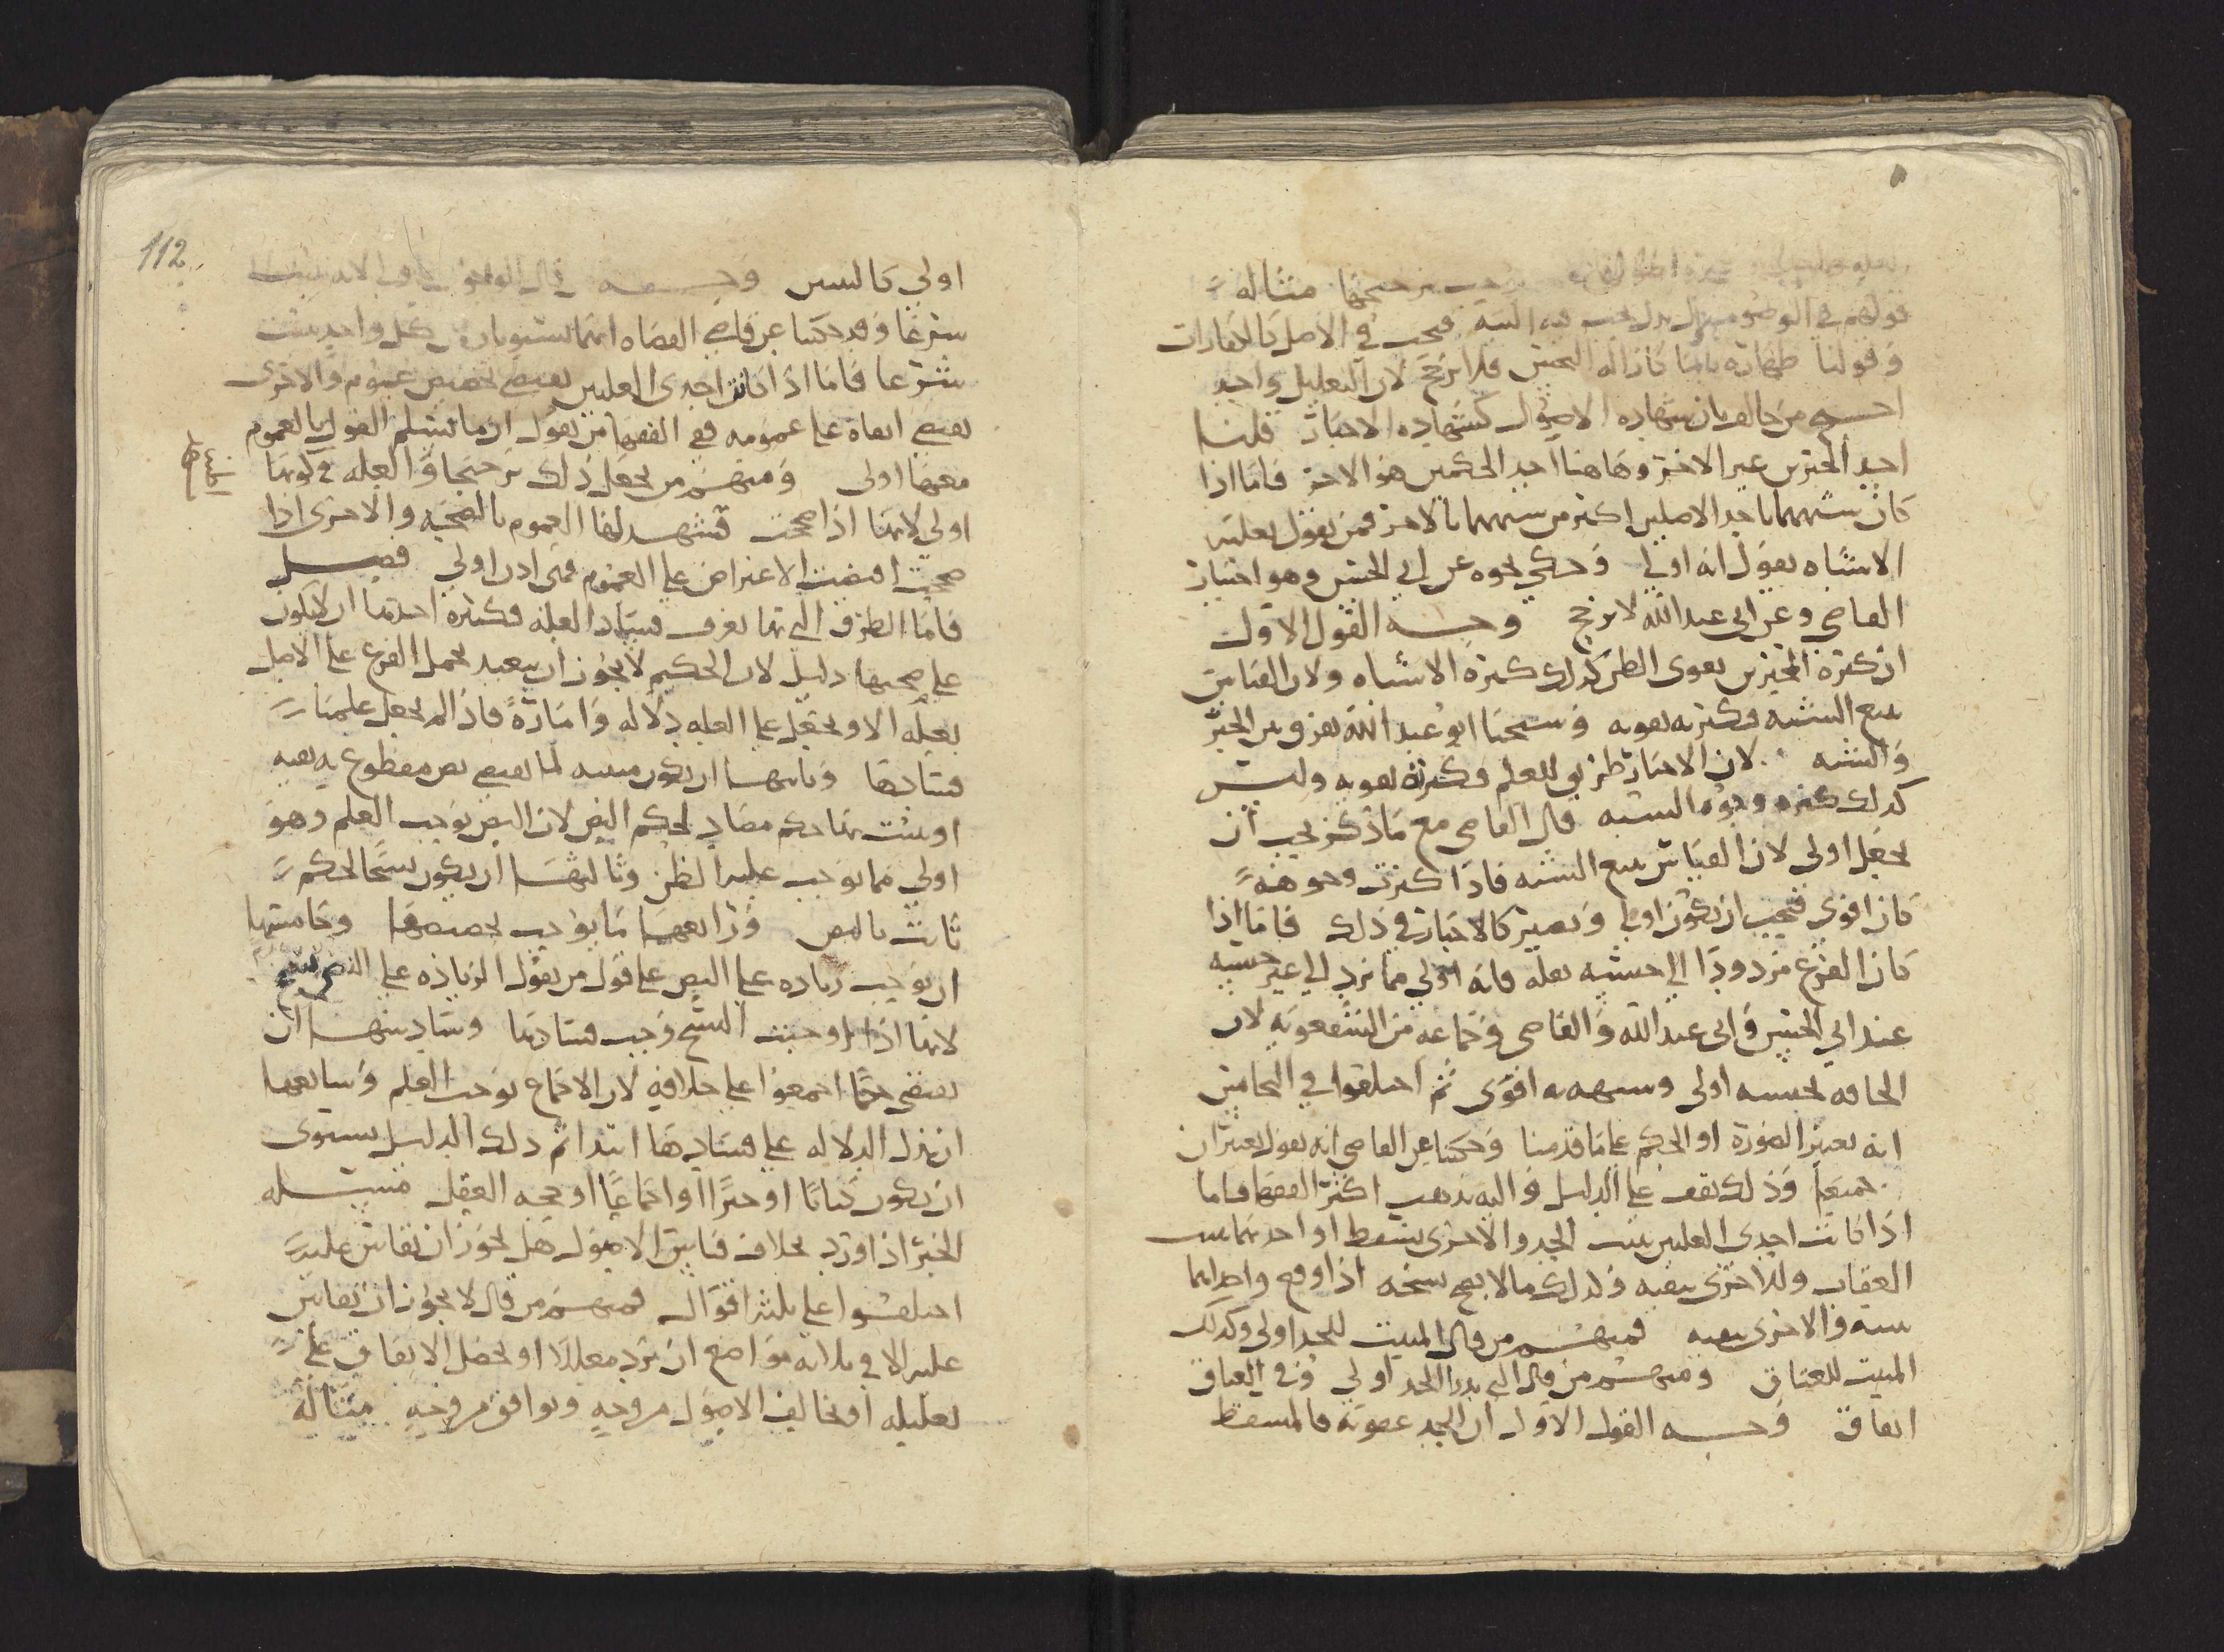 مثاله
قولهم في الوضوء بدل يجب فيه النية فيجب في الاصل كالكفارات
وقولنا طهارة بالماء كازالة النجس فلا ترجح لان التعليل واحد
احتج من خالف بان شهادة الاصول كشهادة الاخبار قلنا
احد الخبرين غير الاخر وهاهنا احد الحكمين هو الاخر فاما اذا
كان شبههما باحد الاصلين اكثر من شبههما بالاخر فمن يقول بعلية
الاشباه يقول انه اولى وحكي نحوه عن ابي الحسن وهو اختيار
القاضي وعن ابي عبد الله لا ترجح وجه القول الاول
ان كثرة المخبرين يقوى الظن كذلك كثرة الاشباه ولان القياس
يتبع الشبه فكثرته تقويه وشيخنا ابو عبد الله يفرق بين الخبر
والشبه لان الاخبار طريق للعلم فكثرته تقويه وليس
كذلك كثرة وجوه الشبه قال القاضي مع ما ذكر يجب ان
يجعل اولى لان القياس يتبع الشبه فاذا كثرت وجوهه
كان اقوى فيجب ان يكون اولى ويصير كالاخبار في ذلك فاما اذا
كان الفرع مردودا الى جنسه بعلة فانه اولى مما يرد الى غير جنسه
عند ابي الحسن وابي عبد الله والقاضي وجماعة من الشفعوية لان
الحاقه بجنسه اولى وشبهه به اقوى ثم اختلفوا في التجانس
انه يعتبر الصورة او الحكم على ما قدمنا وحكينا عن القاضي انه يقول يعتبران
جميعا وذلك يقف على الدليل واليه يذهب اكثر الفقها فاما
اذا كانت احدى العلتين تثبت الحد والاخرى تسقط او احدهما تثبت
العتاق والاخرى ينفيه وكذلك مالا يصح نسخه اذا وقع واحداهما
تثبته والاخرى ينفيه فمنهم من قال المثبت للحد اولى وكذلك
المثبت للعتاق ومنهم من قال التي يدرا الحد اولى وفي العتاق
اتفاق وجه القول الاول ان الحد عقوبة فالمسقط
112
اولى كالبينتين وجه قال
شرعا وقد حكينا عن قاضي القضاة انهما يستويان كل واحد يثبت
شرعا فاما اذا كانت احدى العلتين يقتضي تخصيص عموم والاخرى
يقتضي ابقاه على عمومه ففي الفقها من يقول ان ما تسلم القول بالعموم
معها اولى ومنهم من يجعل ذلك ترجيحا والعلة في كونها
اولى لانها اذا صحت فشهد لها العموم بالصحة والاخرى اذا
صحت اقتضت الاعتراض على العموم فهى اذن اولى فصل
فاما الطرق التي بها نعرف فساد العلة فكثيرة احدها ان لا يكون
على صحتها دليل لان الحكيم لا يجوز ان يتعبد بحمل الفرع على الاصل
بعلة الا ويجعل على العلة دلالة وامارة فاذا لم يجعل علمنا
فسادها وثانيها ان يكون مثبته لما يقتضي نص مقطوع به نفيه
او يثبت بها حكم مضاد لحكم النص لان النص يوجب العلم وهو
اولى مما يوجب غلبه الظن وثالثها ان يكون نسخا لحكم
ثابت بالنص ورابعها ما يوجب تخصيصها وخامسها
ان يوجب زياده على النص على قول من يقول الزياده على النص نسخ
لانها اذا اوجبت النسخ وجب فسادها وسادسها ان
يقتضي حكما اجمعوا على خلافه لان الاجماع يوجب العلم وسابعها
ان يدل الدلاله على فسادها ابتدا ثم ذلك الدليل يستوى
ان يكون كتابا او خبرا او اجماعا او حجه العقل مسئله
الخبر اذا ورد بخلاف قياس الاصول هل يجوز ان يقاس عليه
اختلفوا على ثلثه اقوال فمنهم من قال لا يجوز ان يقاس
عليه الا في ثلاثه مواضع ان يرد معللا او يحصل الاتفاق على
تعليله او يخالف الاصول من وجه ويوافق من وجه مثاله